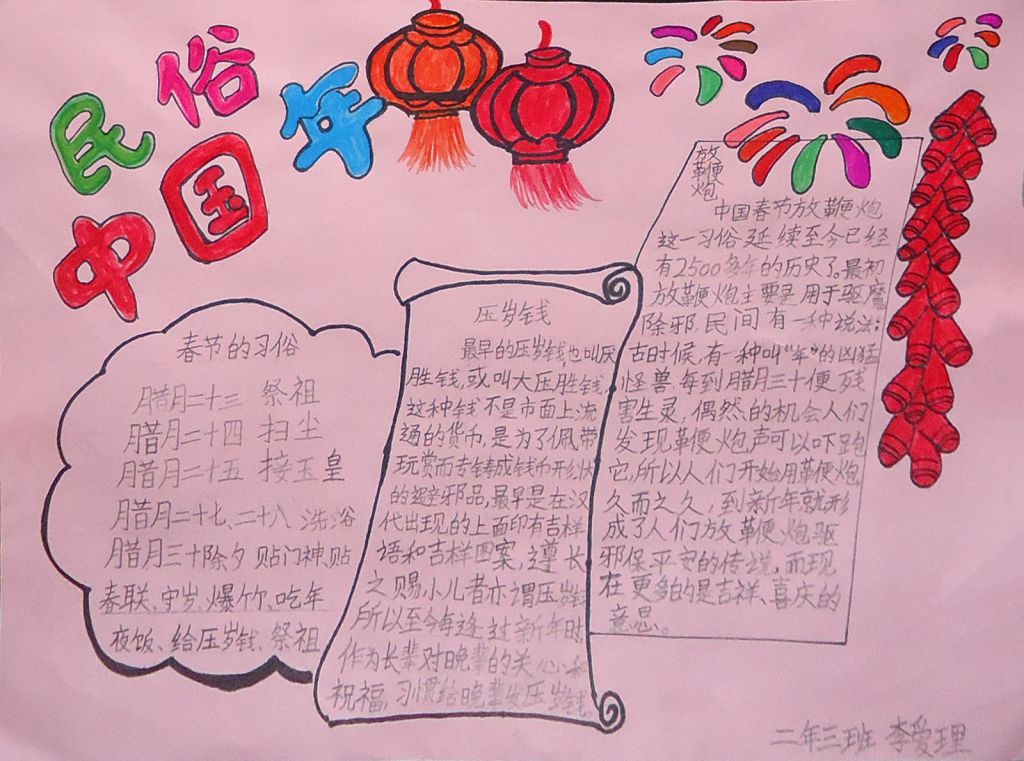 民俗
中国年
春节的习俗
腊月二十三 祭祖
腊月二十四 扫尘
腊月二十五 接玉皇
腊月二十七、二十八 洗浴
腊月三十除夕 贴门神、贴
春联、守岁、爆竹、吃年
夜饭、给压岁钱、祭祖
压岁钱
最早的压岁钱也叫厌
胜钱,或叫大压胜钱,
这种钱不是市面上流
通的货币,是为了佩带
玩赏而专铸成钱币形状
的避邪品,最早是在汉
代出现的上面印有吉样
语和吉样图案,遵长
之赐,小儿者亦谓压岁钱
所以至今每逢过新年时,
作为长辈对晚辈的关心和
祝福,习惯给晚辈发压岁钱
放鞭炮
中国春节放鞭炮
这一习俗延续至今已经
有2500多年的历史了。最初
放鞭炮主要是用于驱魔
除邪,民间有一种说法:
古时候,有一种叫“年”的凶猛
怪兽,每到腊月三十便残
害生灵,偶然的机会人们
发现鞭炮声可以吓跑
它,所以人们开始用鞭炮
久而之久,到新年就形
成了人们放鞭炮驱
邪保平安的传说,而现
在更多的是吉祥、喜庆的
意思。
二年三班 李爱理